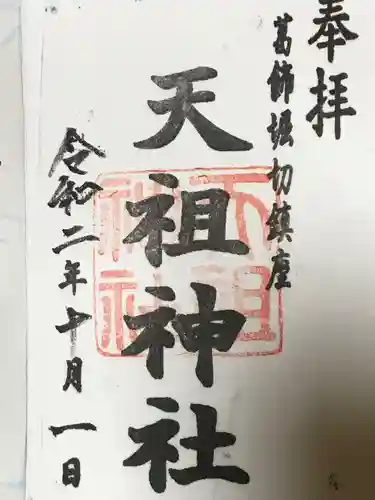 奉拝
葛飾堀切鎮座
天祖神社
天祖神社
令和二年十月一日